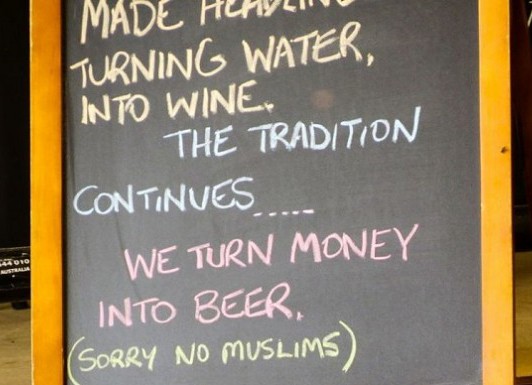 MADE HEADLINE
TURNING WATER,
INTO WINE.
THE TRADITION
CONTINUES.....
WE TURN MONEY
INTO BEER.
(SORRY NO MUSLIMS)
44 010
AUSTRALIA